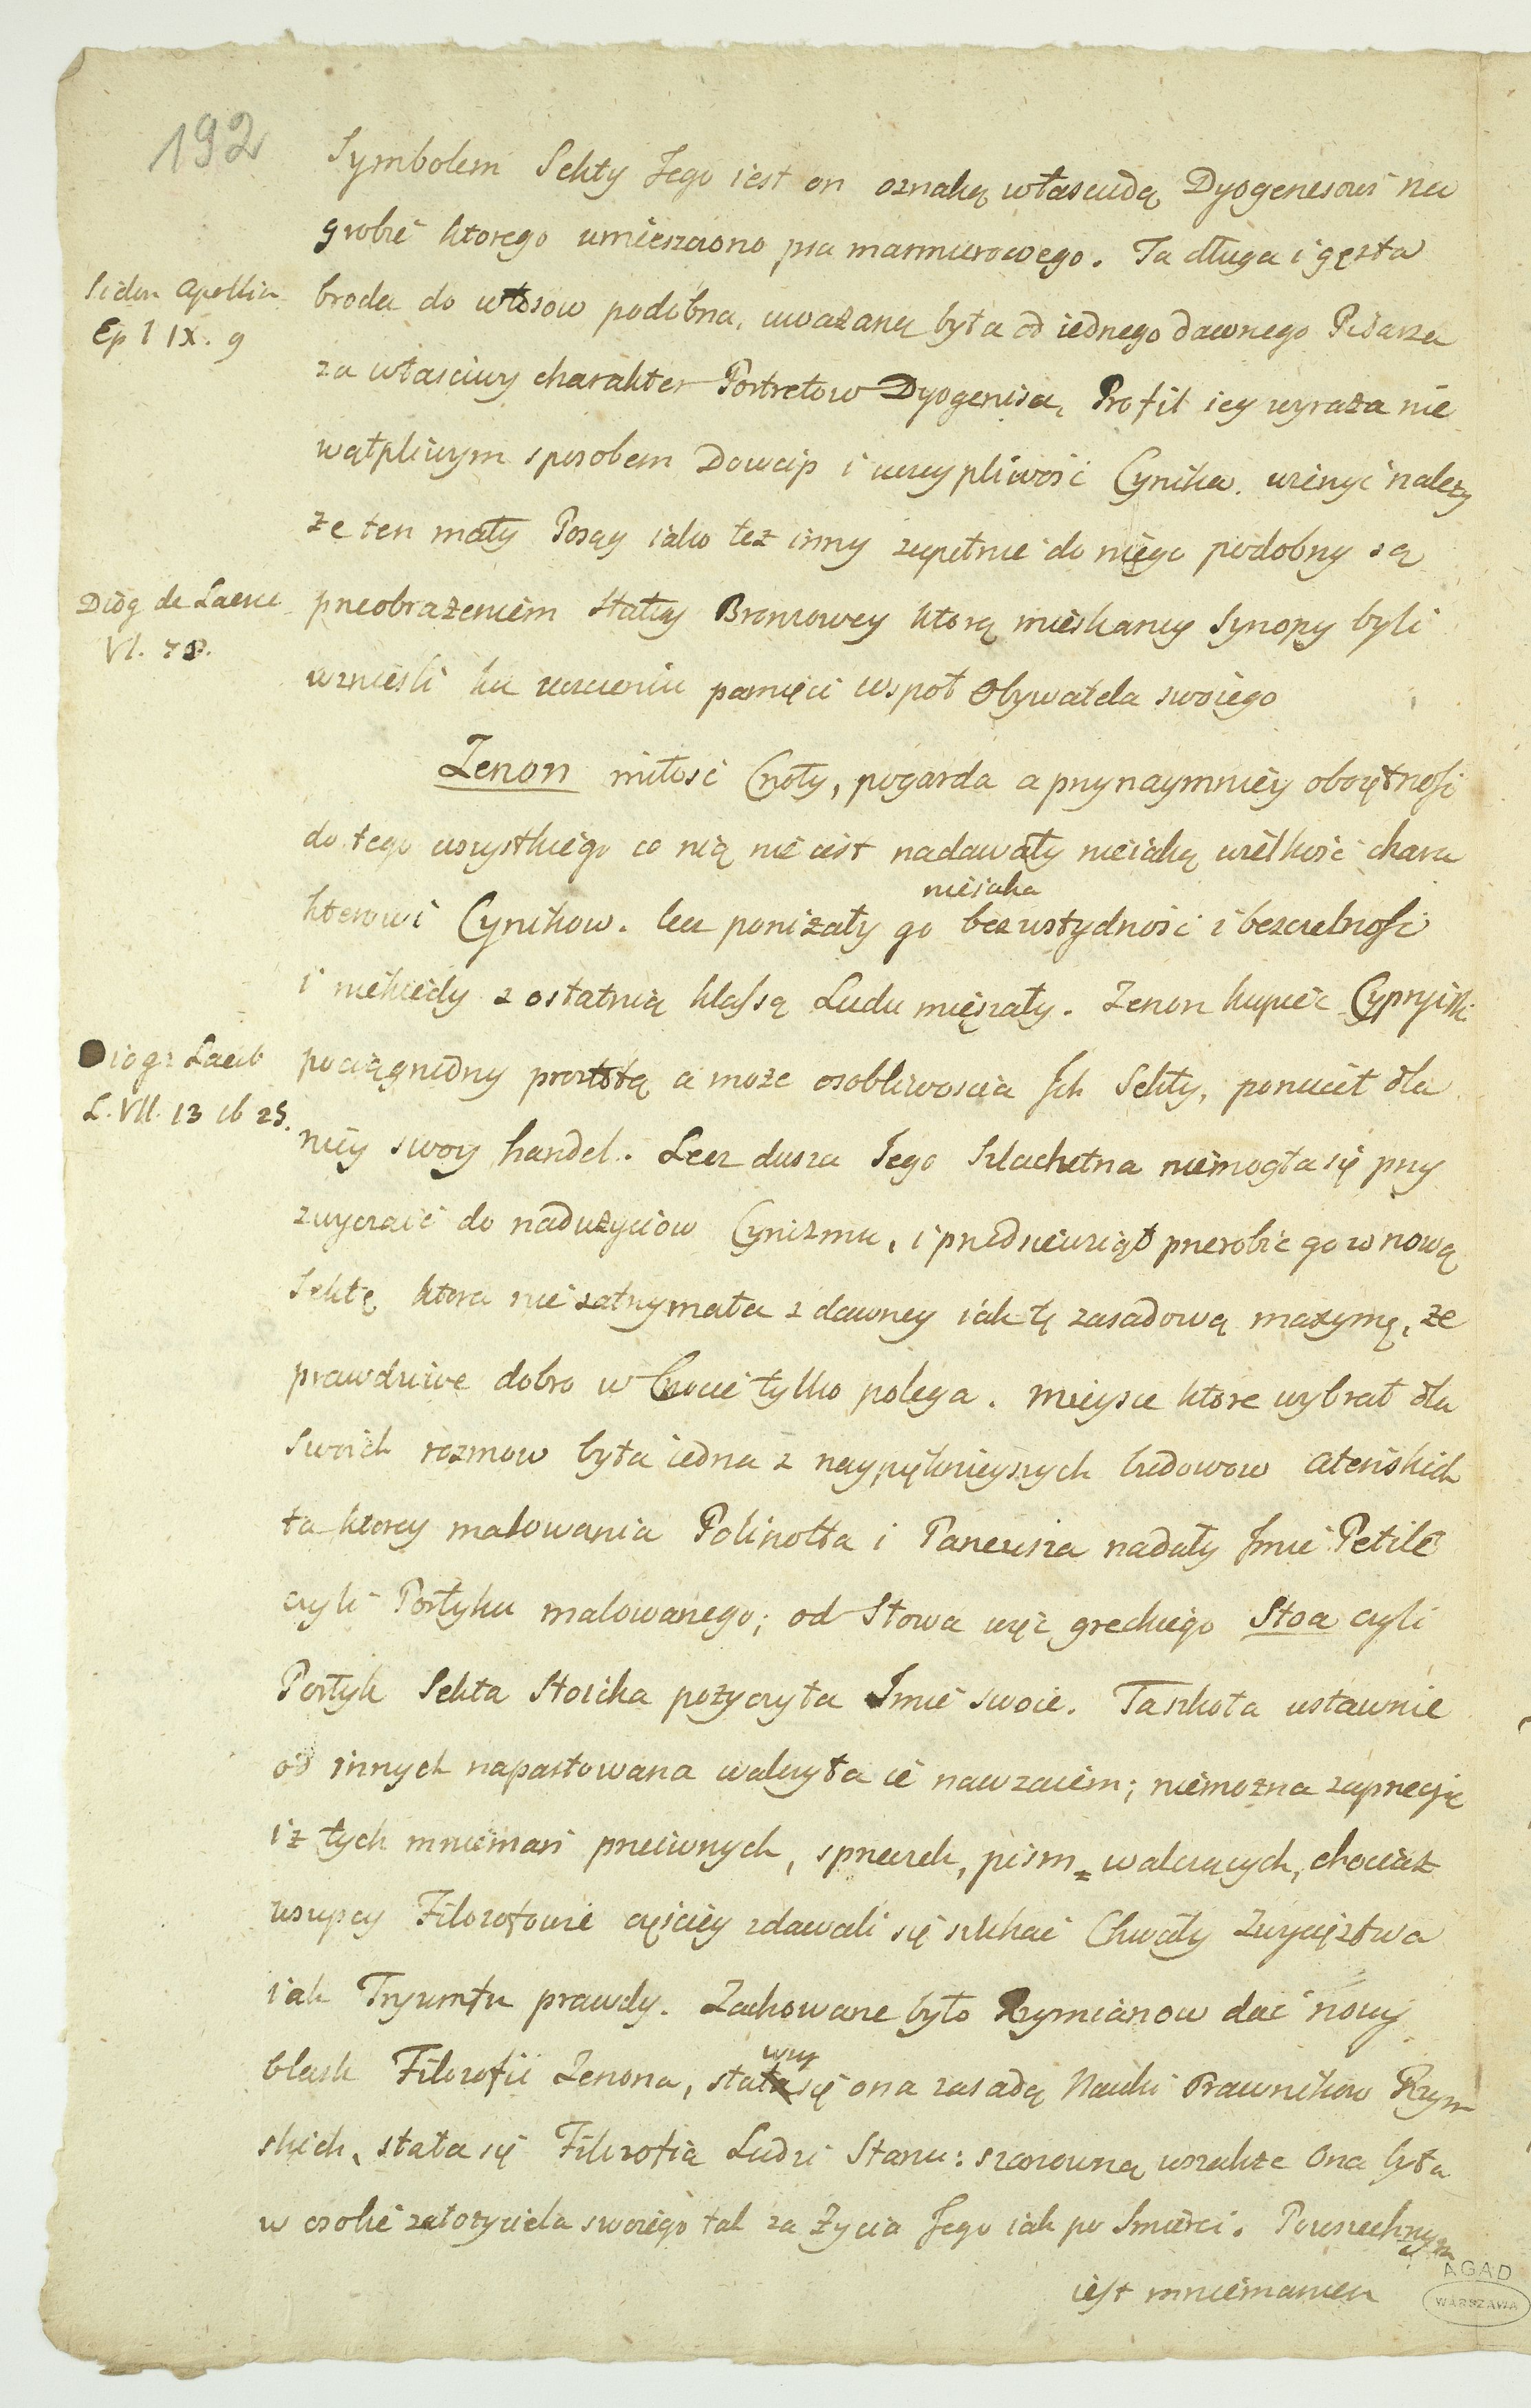 192
Symbolem Sekty Jego iest on oznaką własciwą Dyogenesowi na
grobie ktorego umieszczono psa marmurowego. Ta długa i gęsta
Sidon Apollin
Ep l IX. 9
broda do włosow podobna, uważaną była od iednego dawnego Pisarza
za właściwy charakter Portretow Dyogenisa, Profil iey wyraża nie
wątpliwym sposobem Dowcip i uszczypliwość Cynika. wienyć należy
że ten mały Posąg iako też inny zupełnie do niego podobny są
Diog de Laerce
VI. 78.
przeobrażeniem Statuy Bronzowey którą mieskancy Synopy byli
wznieśli ku uczczeniu pamięci wspoł Obywatela swoiego
Zenon miłość Cnoty, pogarda a przynaymniey oboiętność
do tego wszystkiego co nią nie iest nadawały nieiaką wielkość chara
kterowi Cynikow. lecz poniżały go bezwstydność i bezczelność
nieiaka
i niekiedy z ostatnią klassą Ludu mięszały. Zenon kupiec Cypryiski
Diogr Laerb
L. VII. 13 ib 25.
pociągniony prostotą a może osobliwoscia Ich Sekty, porzucił dla
niey swoy handel. Lecz dusza Jego Szlachetna niemogła się przy
zwyczaić do nadużyciow Cynizmu, i przedniewziął przerobić go w nową
Sektę ktora nie zatrzymała z dawney iak tę zasadową maxymę, że
prawdziwe dobro w Cnocie tylko polega. Mieysce ktore wybrał dla
swoich rozmow była iedna z naypięknieyszych budowow Ateńskich
ta ktorey malowania Polinotta i Paneusza nadały Imie Petile
czyli Portyku malowanego; od Słowa więc greckiego Stoa czyli
Portyk Sekta Stoicka pożyczyła Imie swoie. Ta szkoła ustawnie
od innych napastowana walczyła ie nawzaiem; niemożna zaprzeczyć
iż tych mniemań przeciwnych, sprzeczek, pism walczących, chociaż
wszyscy Filozofowie częściey zdawali się szukać Chwały Zwycięztwa
iak Tryumfu prawdy. Zachowane było Rzymianow dać nowy
blask Filozofii Zenona, stała się ona zasadą Nauki Prawnikow Rzym
wszy
skich, stała się Filozofia Ludzi Stanu: szanowną wszakże Ona była
w osobie założyciela swoiego tak za Życia Jego iak po Smierci. Powszechnym
iest mniemaniem
AGAD
WARSZAWA